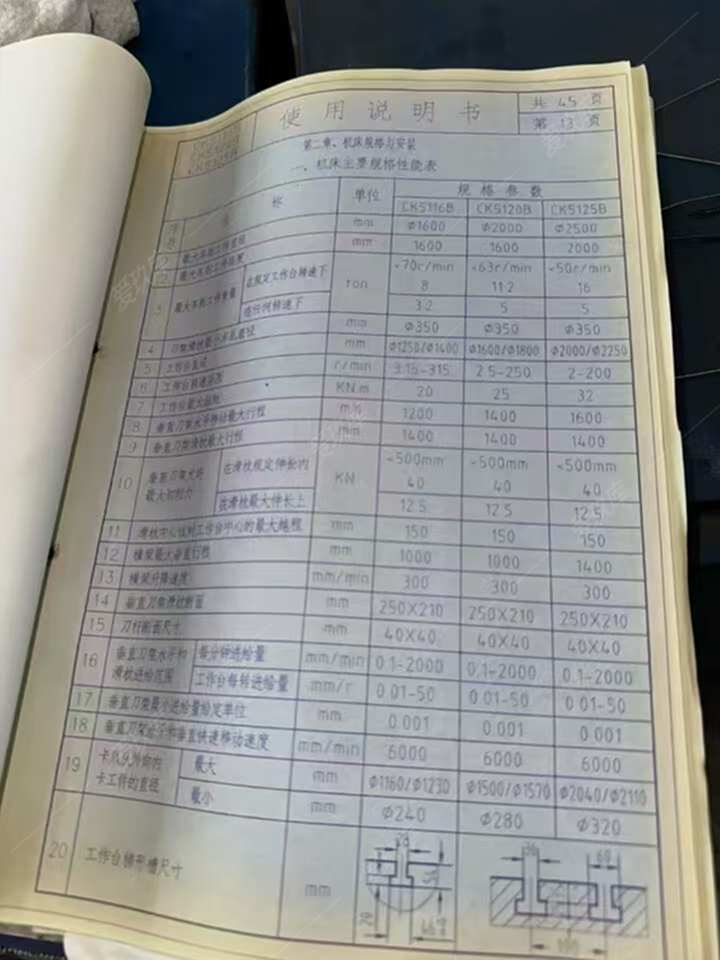 使用说明书
共 45 页
第 13 页
第二章、机床规格与安装
一、机床主要规格性能表
序号 名称 单位 规格参数
CK5116B CK5120B CK5125B
1 最大车削工件直径 mm Φ1600 Φ2000 Φ2500
2 最大车削工件高度 mm 1600 1600 2000
3 最大车削工件重量 在规定工作台转速下 ton <70r/min <63r/min <50r/min
8 11.2 16
在任何转速下 3.2 5 5
4 刀架滑枕最小水孔直径 mm Φ350 Φ350 Φ350
5 工作台直径 mm Φ1250/Φ1400 Φ1600/Φ1800 Φ2000/Φ2250
6 工作台转速范围 r/min 3.15-315 2.5-250 2-200
7 工作台最大扭矩 KN.m 20 25 32
8 垂直刀架水平移动最大行程 mm 1200 1400 1600
9 垂直刀架滑枕最大行程 mm 1400 1400 1400
10 垂直刀架允许最大切削力 在滑枕规定伸长内 KN <500mm <500mm <500mm
40 40 40
在滑枕最大伸长上 12.5 12.5 12.5
11 滑枕中心线对工作台中心的最大越程 mm 150 150 150
12 横梁最大垂直行程 mm 1000 1000 1400
13 横梁升降速度 mm/min 300 300 300
14 垂直刀架滑枕断面 mm 250X210 250X210 250X210
15 刀杆断面尺寸 mm 40X40 40X40 40X40
16 垂直刀架水平和滑枕进给范围 每分钟进给量 mm/min 0.1-2000 0.1-2000 0.1-2000
工作台每转进给量 mm/r 0.01-50 0.01-50 0.01-50
17 垂直刀架最小进给量给定单位 mm 0.001 0.001 0.001
18 垂直刀架水平和垂直快速移动速度 mm/min 6000 6000 6000
19 卡爪从外向内卡工件的直径 最大 mm Φ1160/Φ1230 Φ1500/Φ1570 Φ2040/Φ2110
最小 mm Φ240 Φ280 Φ320
20 工作台梯形槽尺寸 mm